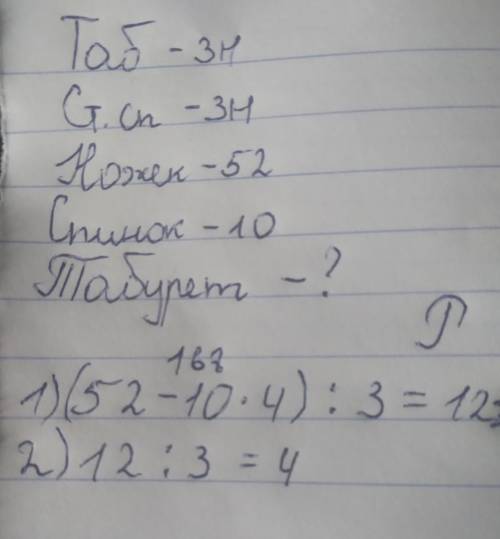 Таб - 3н
Ст.сп - 3н
Ножек - 52
Спинок - 10
Табурет - ?
Р
1) (52 - 10 · 4) : 3 = 12
2) 12 : 3 = 4